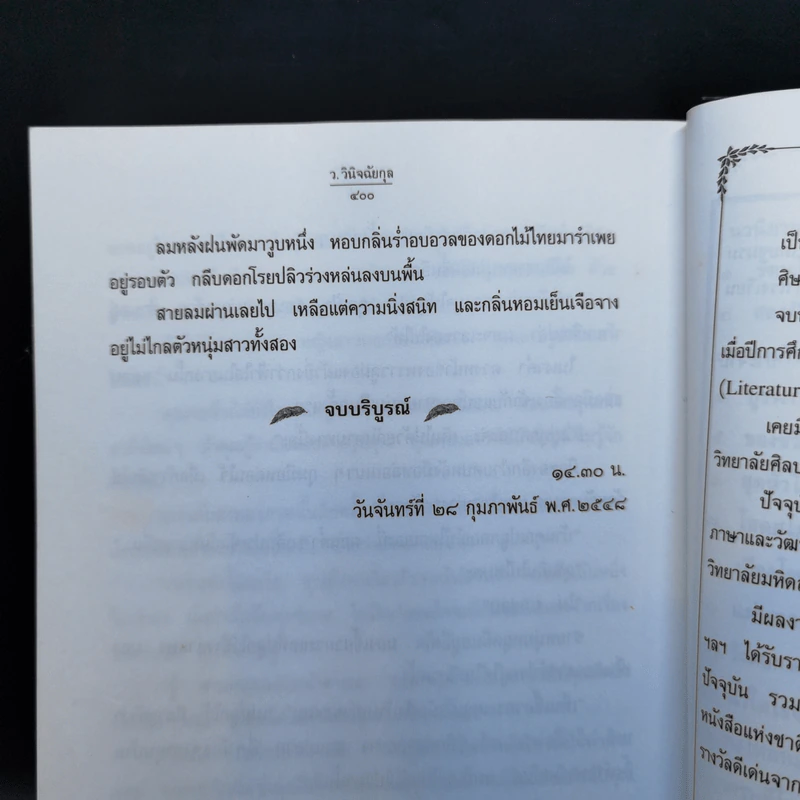 ว.วินิจฉัยกุล
๔๐๐
ลมหลังฝนพัดมาวูบหนึ่ง หอบกลิ่นร่ำอบอวลของดอกไม้ไทยมารำเพย
อยู่รอบตัว กลีบดอกโรยปลิวร่วงหล่นลงบนพื้น
สายลมผ่านเลยไป เหลือแต่ความนิ่งสนิท และกลิ่นหอมเย็นเจือจาง
อยู่ไม่ไกลตัวหนุ่มสาวทั้งสอง
จบบริบูรณ์
๑๔.๓๐ น.
วันจันทร์ที่ ๒๘ กุมภาพันธ์ พ.ศ.๒๕๔๘
เป็น
ศิษ
จบ
เมื่อปีการศึก
(Literatur
เคยมี
วิทยาลัยศิลป
ปัจจุบ
ภาษาและวัฒ
วิทยาลัยมหิด
มีผลงา
ฯลฯ ได้รับรา
ปัจจุบัน รวม
หนังสือแห่งชาติ
รางวัลดีเด่นจาก